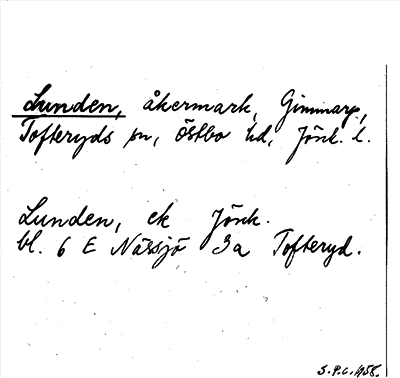 Lunden, åkermark, Gimmarp,
Tofteryds sn, Östbo hd, Jönk. l.
Lunden, ek Jönk.
bl. 6 E Nässjö 3a Tofteryd.
S.P.C. 1958.